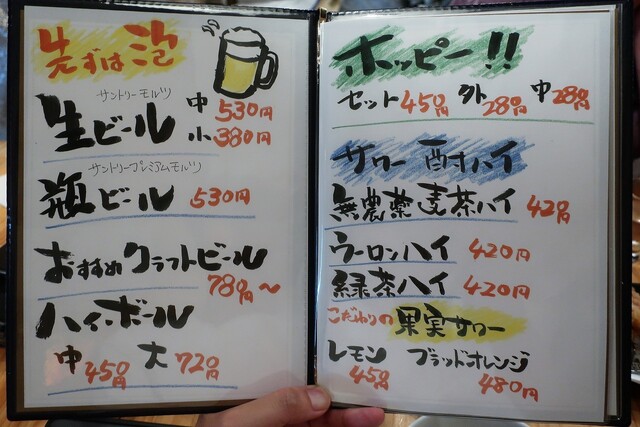 先ずは泡
サントリーモルツ
生ビール 中 530円
小 380円
サントリープレミアムモルツ
瓶ビール 530円
おすすめクラフトビール
780円〜
ハイボール
中 450円 大 720円
ホッピー!!
セット 450円 外 280円 中 280円
サワー 酎ハイ
無農薬麦茶ハイ 420円
ウーロンハイ 420円
緑茶ハイ 420円
こだわりの果実サワー
レモン ブラッドオレンジ
450円 480円